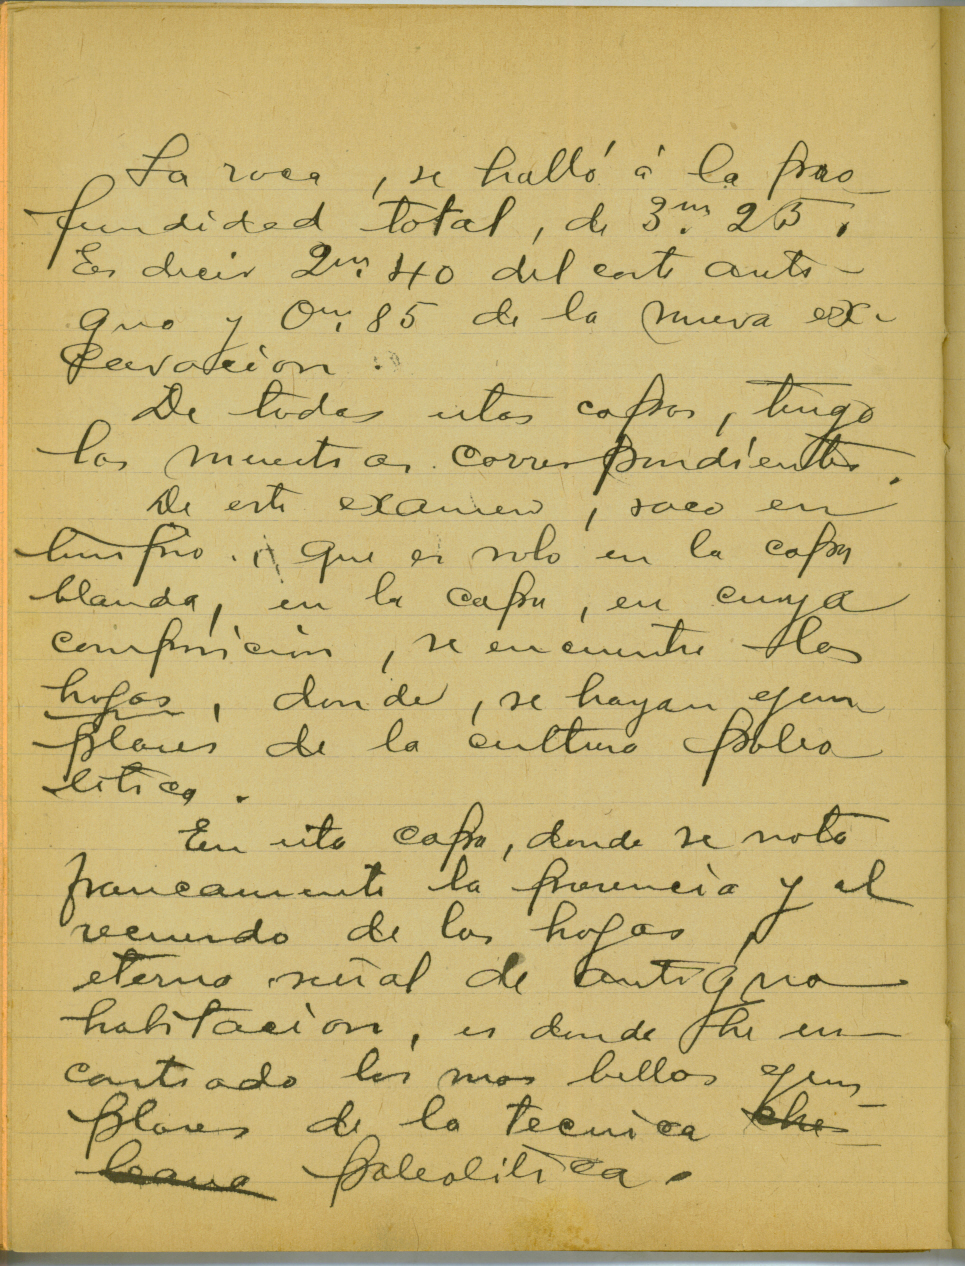 La roca, se halló á la pro
fundidad total, de 3m. 25.
Es decir 2m. 40 del corte anti-
guo y 0m. 85 de la nueva ex-
cavacion.
De todas estas capas, tengo
las muestras correspondientes.
De este examen, saco en
limpio.. que es solo en la capa
blanda, en la capa, en cuya
composicion, se encuentre los
hogas, donde, se hayan ejem
plares de la cultura paleo
litica.
En esta capa, donde se nota
francamente la presencia y el
recuerdo de los hogas,
eterna señal de antigua
habitacion, es donde he en
contrado los mas bellos ejem
plares de la tecnica che-
leana paleolitica.